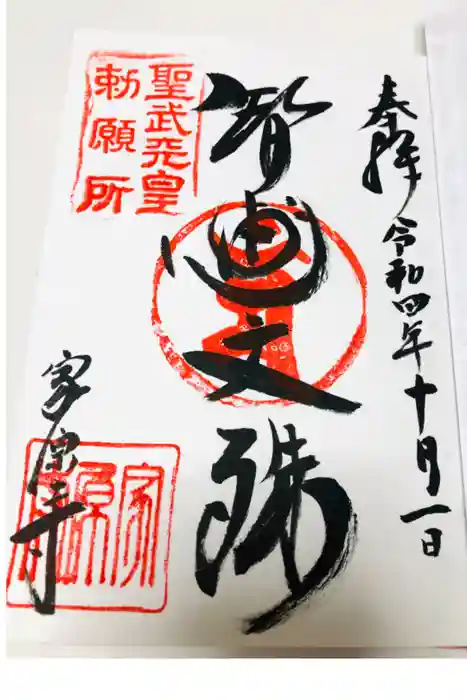 奉拝
令和四年十月一日
智恵文殊
聖武天皇
勅願所
家原寺
家原寺